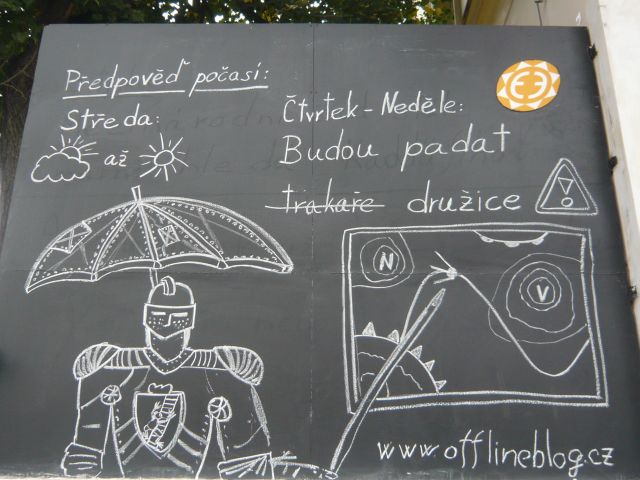 Předpověď počasí:
Středa:
až
Čtvrtek - Neděle:
Budou padat
trakaře družice
N
V
www.offlineblog.cz